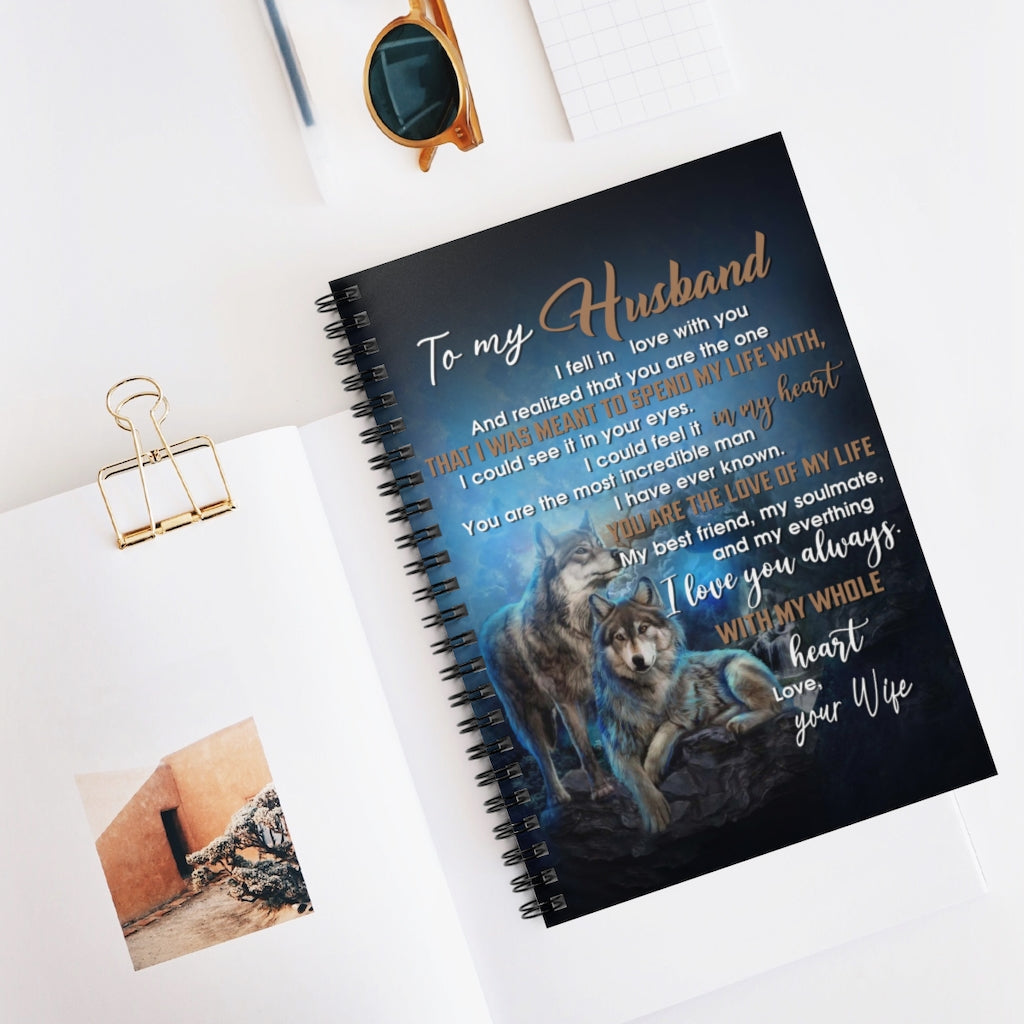 To my Husband
I fell in love with you
And realized that you are the one
THAT I WAS MEANT TO SPEND MY LIFE WITH,
I could see it in your eyes.
I could feel it in my heart
You are the most incredible man
I have ever known.
YOU ARE THE LOVE OF MY LIFE
My best friend, my soulmate,
and my everthing
I love you always.
WITH MY WHOLE
heart
Love,
your Wife